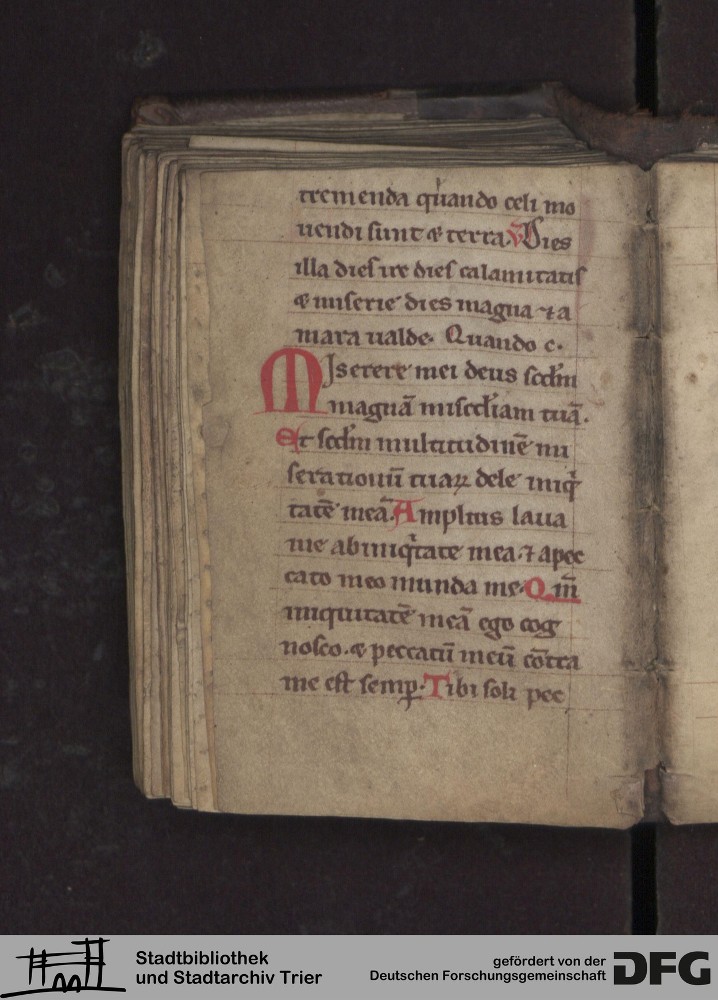 tremenda quando celi mo
uendi sunt & terra. V̄ Dies
illa dies ire dies calamitatis
& miserie dies magna ⁊ a
mara ualde. Quando c.
Miserere mei deus scdm̄
magnā misedl̄iam tuā.
Et scdm̄ multitudinē mi
serationū tuaꝝ dele iniq̄
tatē meā. Amplius laua
me ab iniq̄tate mea. ⁊ a pec
cato meo munda me. Qm̄
iniquitatē meā ego cog
nosco. & peccatū meū cōtra
me est semꝑ. Tibi soli pec
Stadtbibliothek
und Stadtarchiv Trier
gefördert von der
Deutschen Forschungsgemeinschaft
DFG